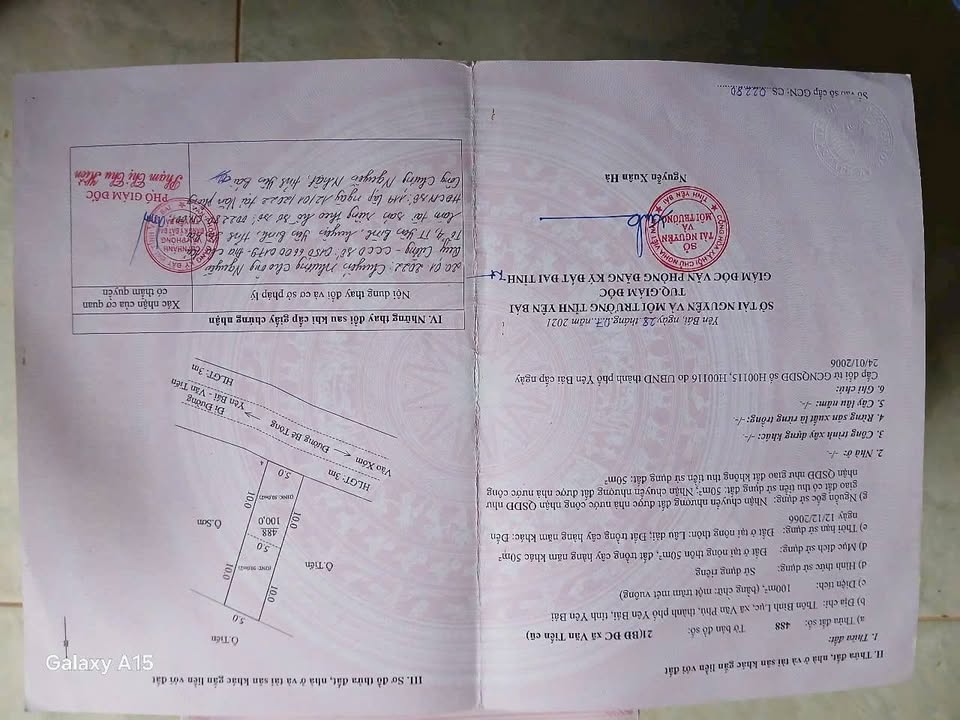 II. Thửa đất, nhà ở và tài sản khác gắn liền với đất
1. Thửa đất:
a) Thửa đất số: 488 Tờ bản đồ số: 21(BĐ ĐC xã Văn Tiến cũ)
b) Địa chỉ: Thôn Bình Lục, xã Văn Phú, thành phố Yên Bái, tỉnh Yên Bái
c) Diện tích: 100m², (bằng chữ: một trăm mét vuông)
d) Hình thức sử dụng: Sử dụng riêng
đ) Mục đích sử dụng: Đất ở tại nông thôn 50m², đất trồng cây hàng năm khác 50m²
e) Thời hạn sử dụng: Đất ở tại nông thôn: Lâu dài; Đất trồng cây hàng năm khác: Đến
ngày 12/12/2066
g) Nguồn gốc sử dụng: Nhận chuyển nhượng đất được nhà nước công nhận QSDĐ như
giao đất có thu tiền sử dụng đất: 50m²; Nhận chuyển nhượng đất được nhà nước công
nhận QSDĐ như giao đất không thu tiền sử dụng đất: 50m²
2. Nhà ở: -/-.
3. Công trình xây dựng khác: -/-.
4. Rừng sản xuất là rừng trồng: -/-.
5. Cây lâu năm: -/-.
6. Ghi chú:
Cấp đổi từ GCNQSDĐ số H00115, H00116 do UBND thành phố Yên Bái cấp ngày
24/01/2006
Yên Bái, ngày 28 tháng 07 năm 2021
SỞ TÀI NGUYÊN VÀ MÔI TRƯỜNG TỈNH YÊN BÁI
TUQ.GIÁM ĐỐC
GIÁM ĐỐC VĂN PHÒNG ĐĂNG KÝ ĐẤT ĐAI TỈNH
CỘNG HÒA XÃ HỘI CHỦ NGHĨA VIỆT NAM
SỞ
TÀI NGUYÊN
VÀ
MÔI TRƯỜNG
TỈNH YÊN BÁI
Nguyễn Xuân Hà
Số vào sổ cấp GCN: CS 02280
III. Sơ đồ thửa đất, nhà ở và tài sản khác gắn liền với đất
Ô.Tiến
5.0
10.0
10.0
Ô.Tiến
5.0
488
100,0
Ô.Sơn
10.0
10.0
5.0
HLGT: 3m
Vào Xóm
Đường Bê Tông
Đi Đường
Yên Bái - Văn Tiến
HLGT: 3m
IV. Những thay đổi sau khi cấp giấy chứng nhận
Nội dung thay đổi và cơ sở pháp lý
Xác nhận của cơ quan
có thẩm quyền
20.01.2022: Chuyển nhượng cho ông Nguyễn
CCCD số
TT Yên Bình, huyện Yên Bình, tỉnh
tài sản riêng theo hồ sơ số
lập ngày 12/01/2022 tại Văn phòng
Công chứng Nguyễn Nhật tỉnh Yên Bái
PHÓ GIÁM ĐỐC
Phạm Thị Thu Hiền
Galaxy A15